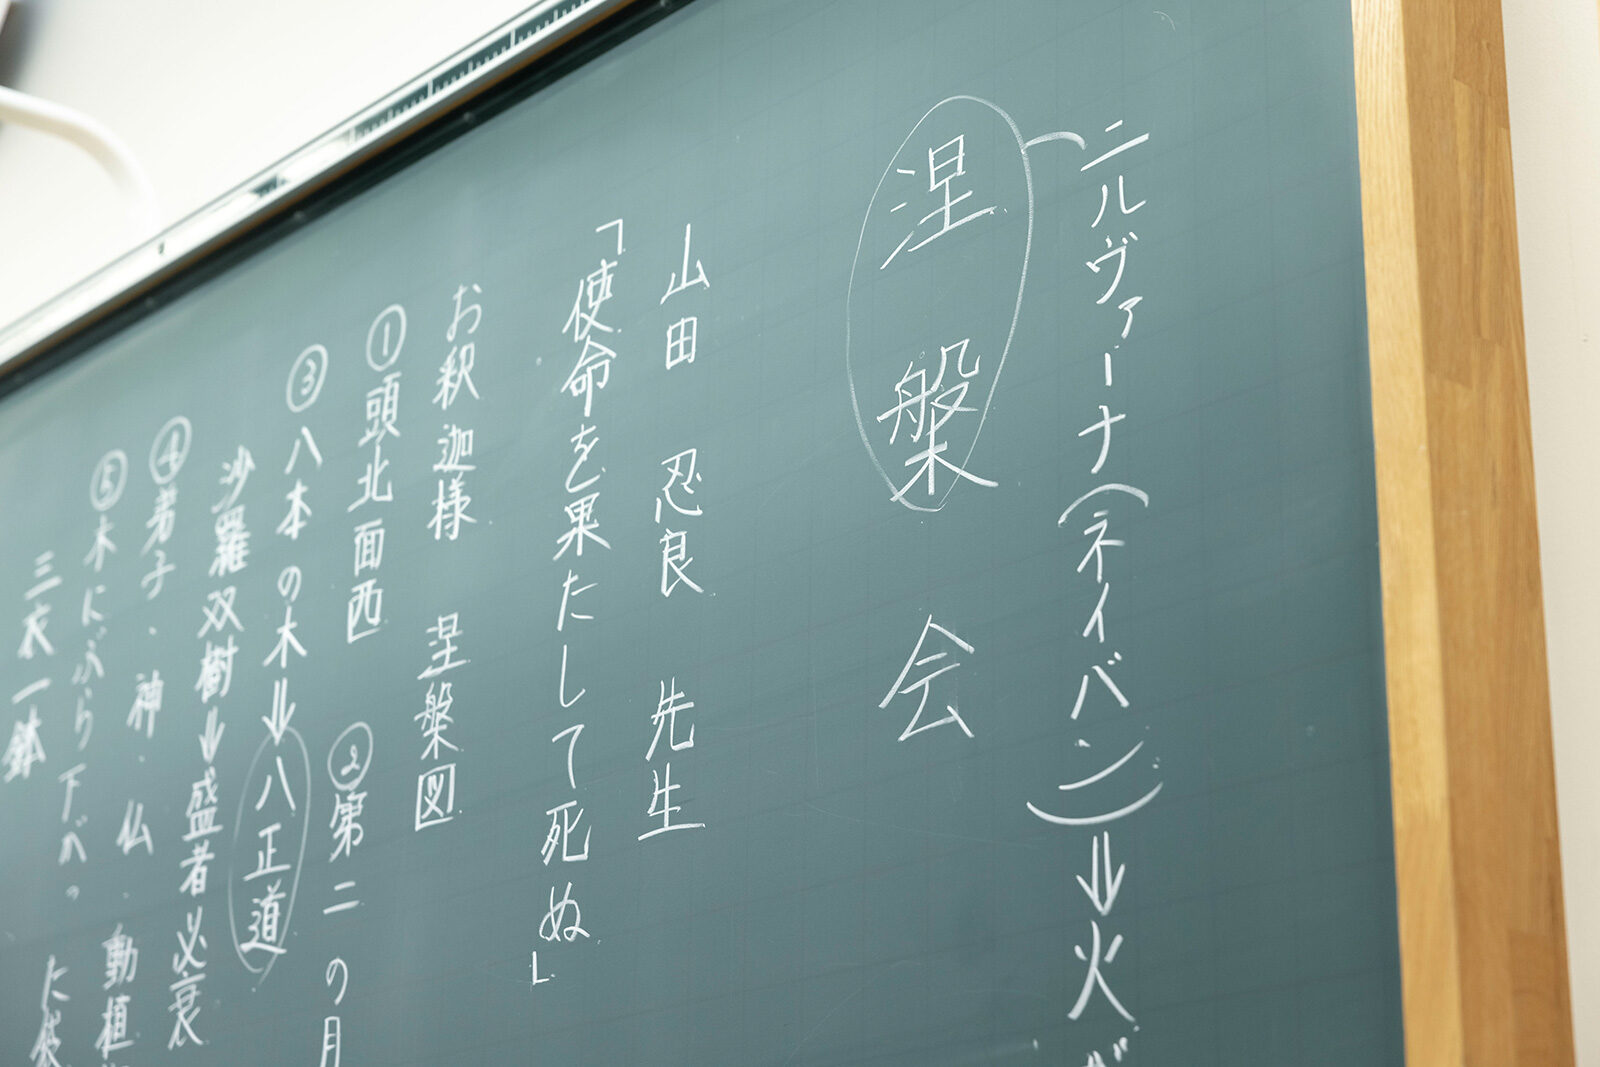 ニルヴァーナ(ネイバン)⇓火が
涅槃会
山田 忍良 先生
「使命を果たして死ぬ」
お釈迦様 涅槃図
①頭北面西 ②第二の月
③八本の木⇓八正道
沙羅双樹⇓盛者必衰
④弟子・神・仏・動植
⑤木にぶら下がった袋
三衣一鉢